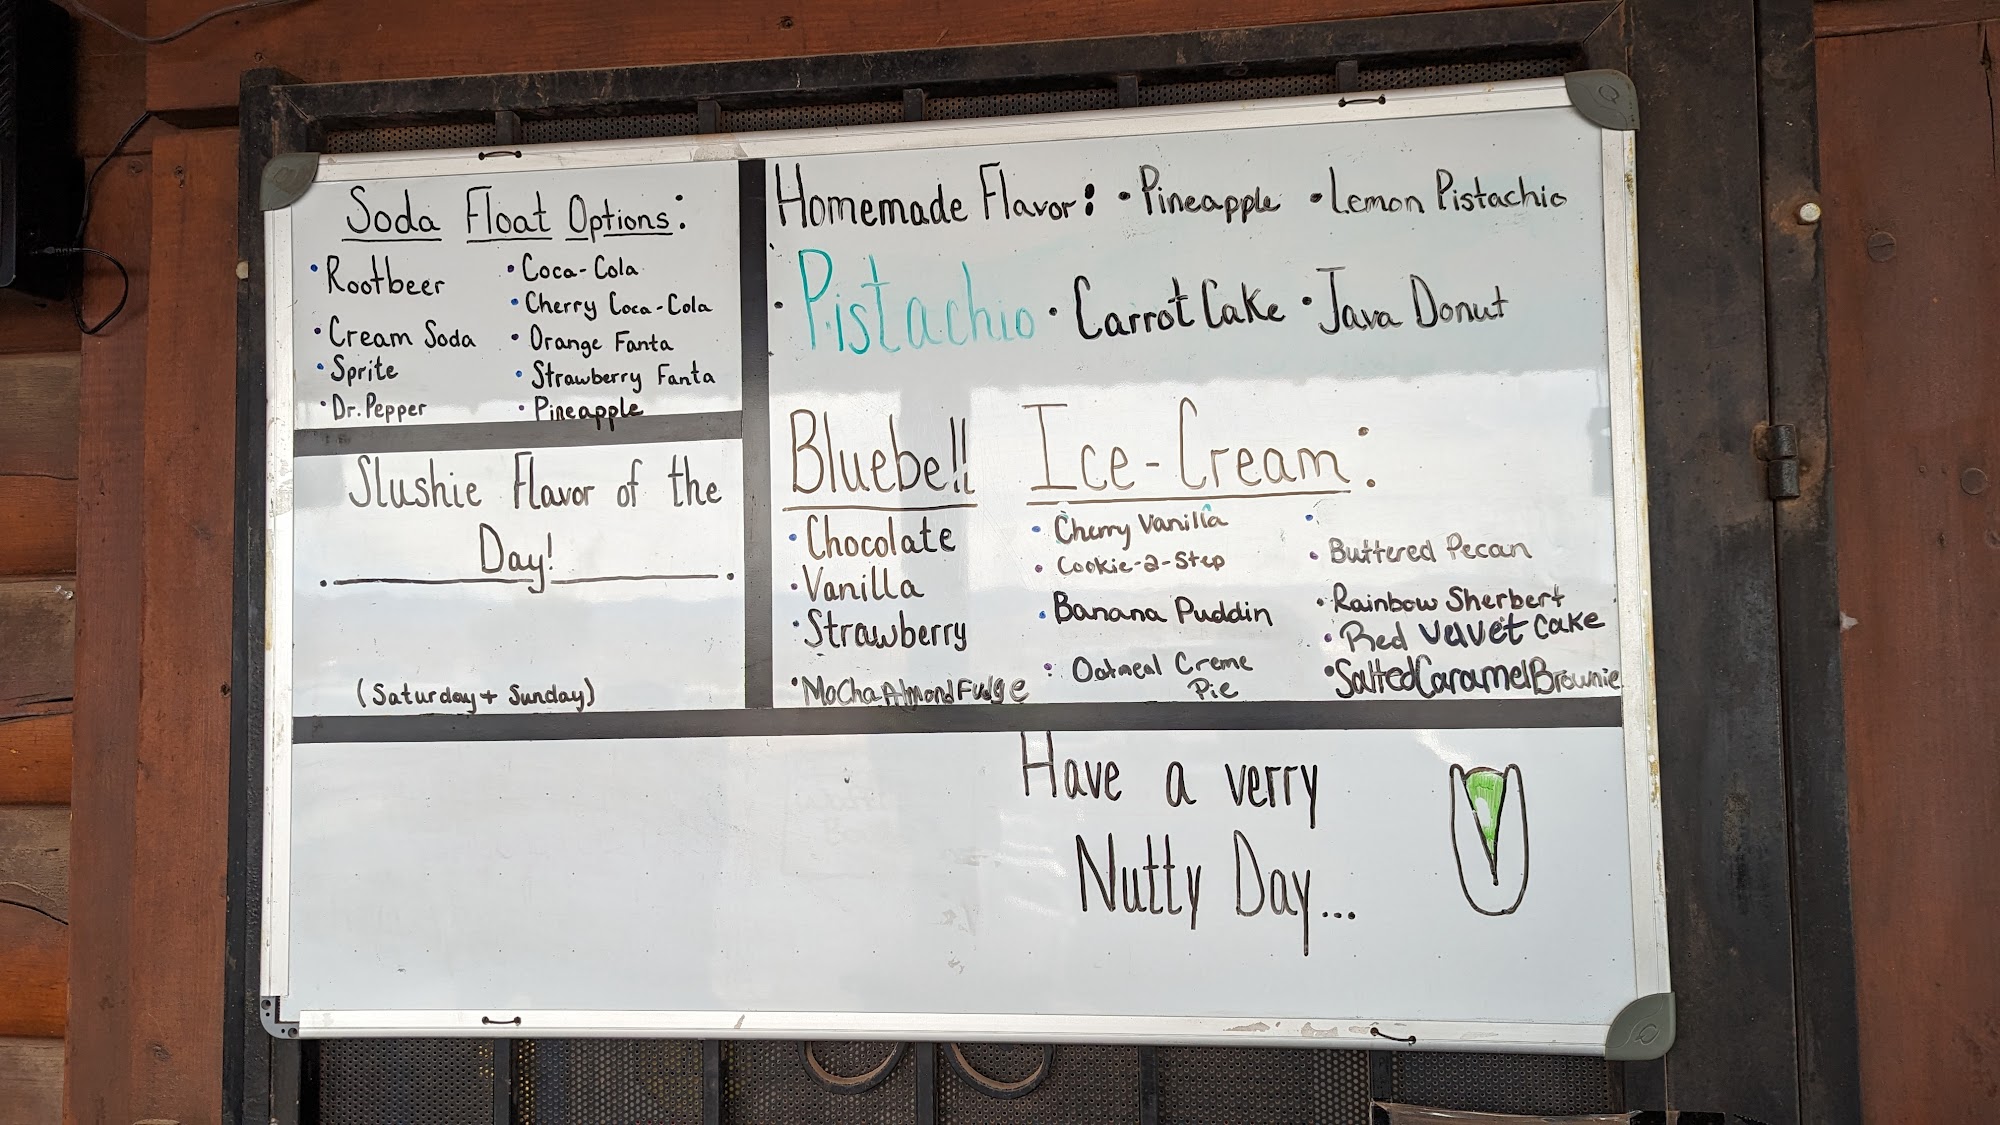 Soda Float Options:
• Rootbeer
• Cream Soda
• Sprite
• Dr. Pepper
• Coca-Cola
• Cherry Coca-Cola
• Orange Fanta
• Strawberry Fanta
• Pineapple
Slushie Flavor of the
Day!
(Saturday + Sunday)
Homemade Flavor: • Pineapple • Lemon Pistachio
• Pistachio • Carrot Cake • Java Donut
Bluebell Ice-Cream:
• Chocolate
• Vanilla
• Strawberry
• Mocha Almond Fudge
• Cherry Vanilla
• Cookie-2-Step
• Banana Puddin
• Oatmeal Creme
Pie
•
• Buttered Pecan
• Rainbow Sherbert
• Red Velvet Cake
• Salted Caramel Brownie
Have a verry
Nutty Day...